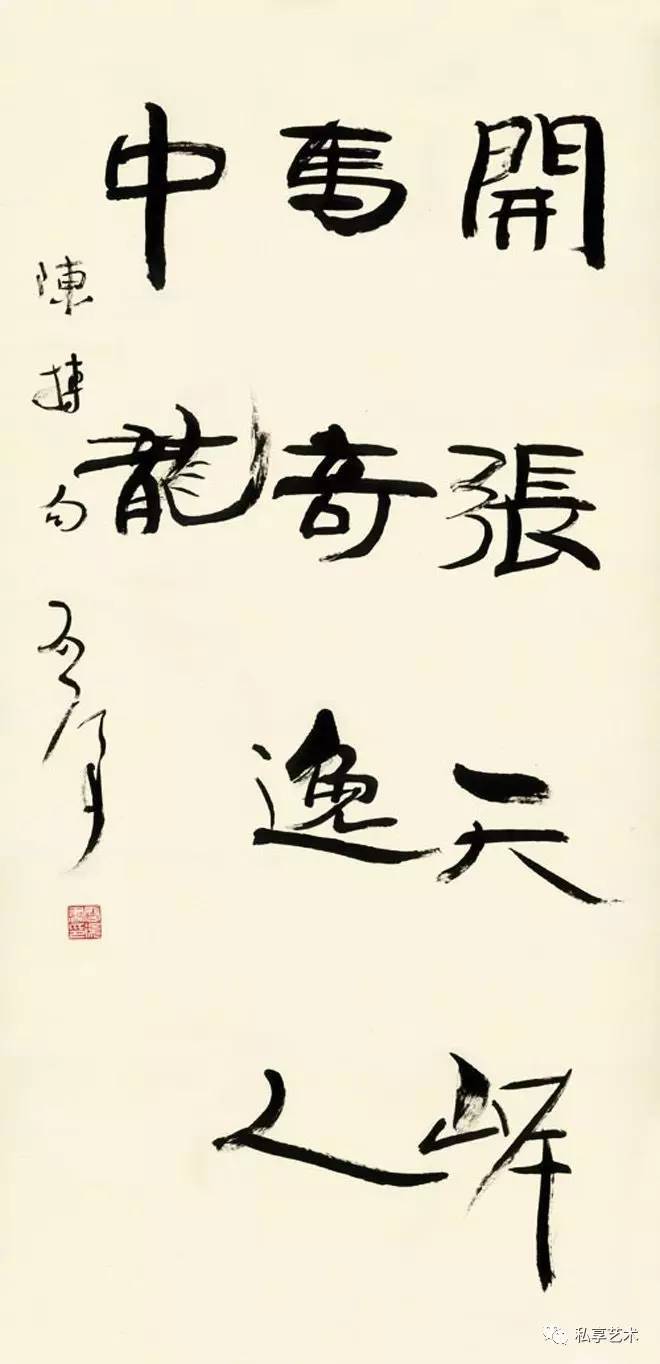 開張天岸
馬奇逸人
中龍
陳摶句
私享艺术